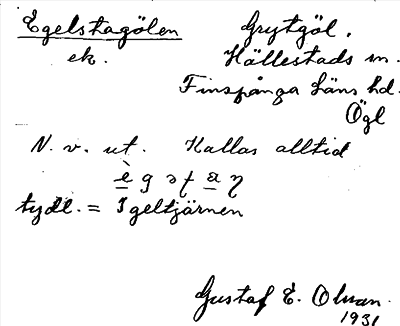 Egelstagölen Grytgöl.
ek. Hällestads sn.
Finspånga läns hd.
Ögl
N. v. ut. Kallas alltid
tydl. = Igeltjärnen
Gustaf E. Olwan.
1931